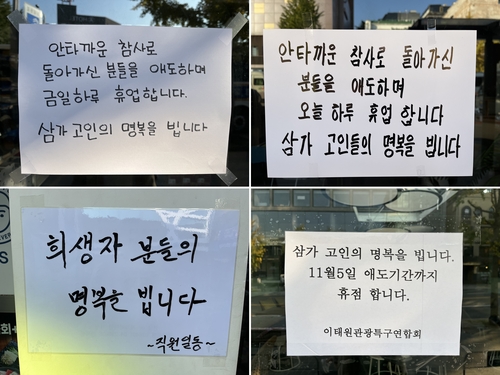 안타까운 참사로
돌아가신 분들을 애도하며
금일하루 휴업합니다.
삼가 고인의 명복을 빕니다
안타까운 참사로 돌아가신
분들을 애도하며
오늘 하루 휴업 합니다
삼가 고인들의 명복을 빕니다
희생자 분들의
명복을 빕니다
~직원일동~
삼가 고인의 명복을 빕니다.
11월5일 애도기간까지
휴점 합니다.
이태원관광특구연합회